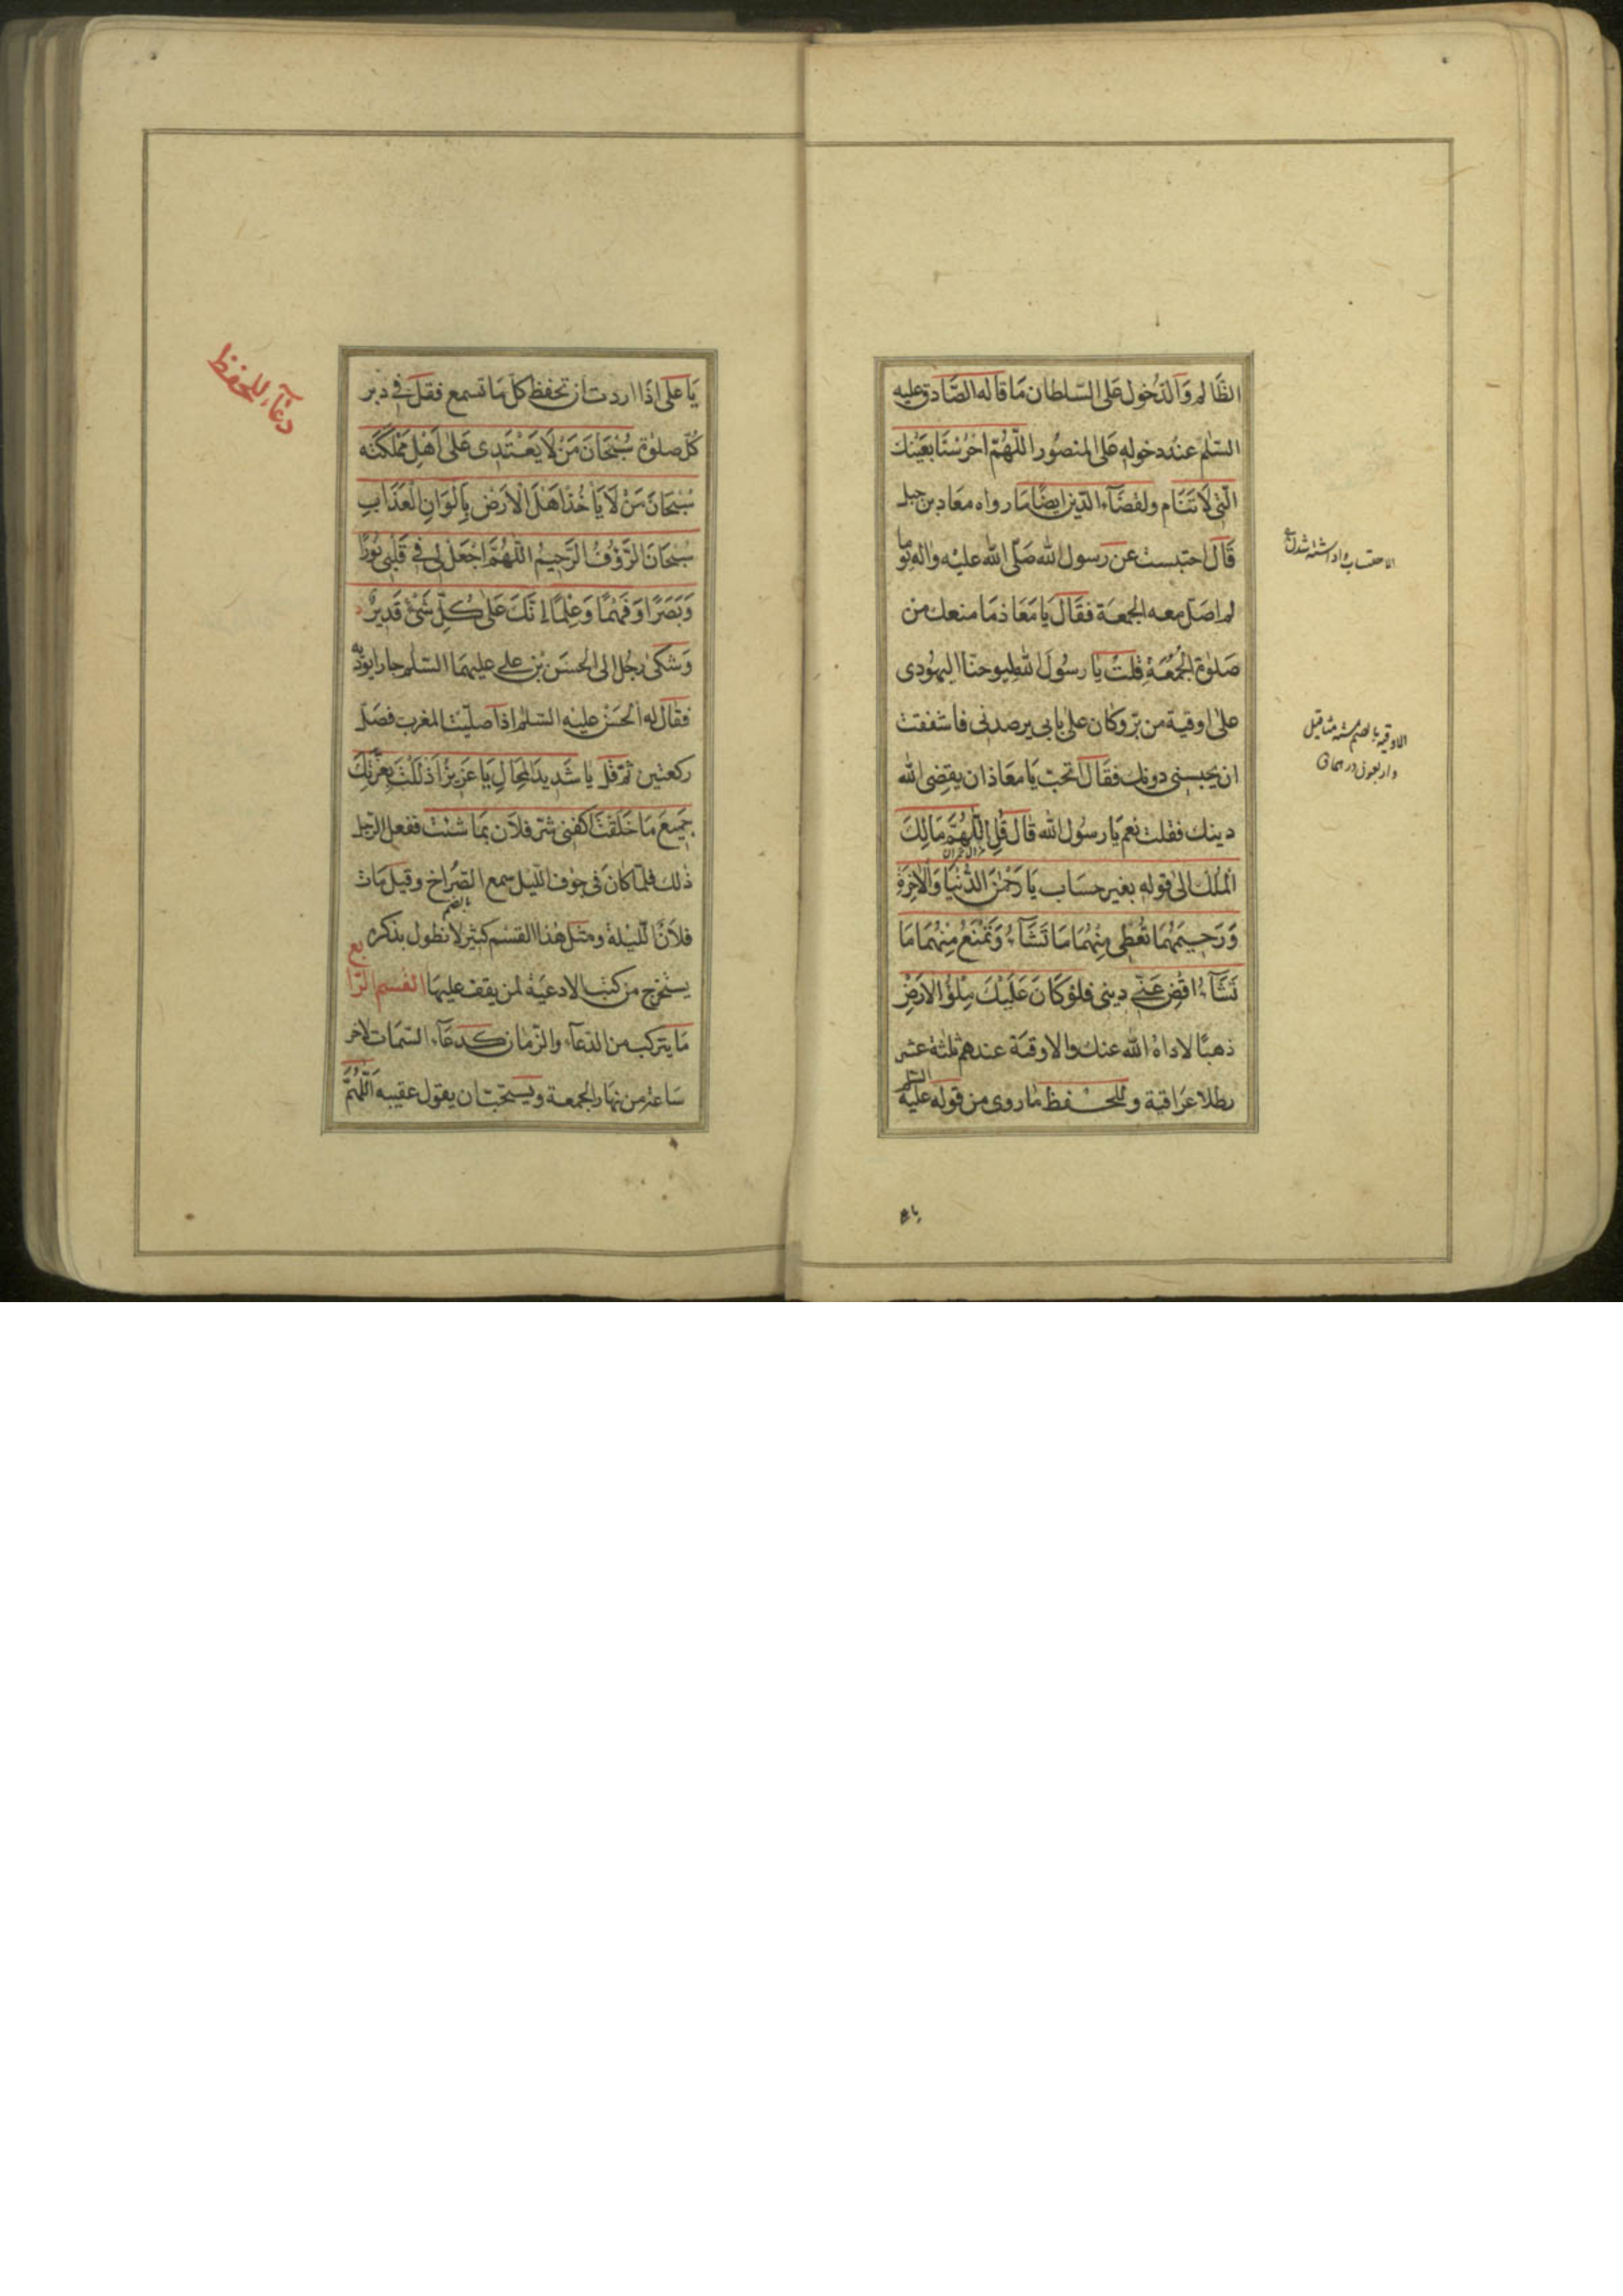 الظَّالم وَالدّخول عَلى السّلطان مَا قاله الصَّادق عليه
السّلم عند دخوله عَلى المنصُور اللّهُمّ احْرُسْنَا بعَيْنك
الّتى لَا تَنَام ولقضَآء الدّين ايضًا مَا رواه معَاد بن جبل
قَال احتبست عن رسول الله صَلّى الله عليْه واله يومًا
لم اصَلّ معه الجمعَة فقَال يَا مَعَاذ مَا منعك من
صَلوة الجُمُعَةِ قلتُ يَا رسُولَ الله ليوحنّا اليهُودى
علىّ اوقية من برّ وكان على بابى يرصدنى فاشفقت
ان يحبسنى دونك فقَال اتحبّ يَا معَاذ ان يقضى الله
دينك فقلت نعم يَا رسُول الله قال قُلِ اللّهُمَّ مَالِكَ
الْمُلْك الى قوله بغير حسَاب يَا رَحْمٰنَ الدُّنْيَا وَالْاٰخِرَةِ
وَرَحِيمَهُمَا تُعْطِى مِنْهُمَا مَا تَشَآءُ وَتَمْنَعُ مِنْهُمَا مَا
تَشَآءُ اقْضِ عَنّى دينى فلوْ كَانَ عَلَيْكَ مِلْؤُ الارَضْ
ذهبًا لاداهُ الله عنك والاوقية عندهم ثلثة عشر
رطلا عرَاقية وللحفظ مَا روى من قوله عليه السّلم
الاوقيه بالضم سته مثاقيل
واربعون درهما ق
يا ع
دعآء للحفظ
يَا على اذَا اردت ان تحفظ كلّ مَا تسمع فقل فى دبر
كُلّ صلوة سُبْحَانَ مَنْ لَا يَعْتَدِى عَلىٰ اَهْلِ مَمْلَكَتِه
سُبْحَانَ مَنْ لَا يَاْخُذُ اَهْلَ الْاَرْضِ بِاَلْوَانِ الْعَذَابِ
سُبْحَانَ الرَّؤُفُ الرَّحِيمُ اللّهُمَّ اجْعَلْ لِى فى قَلْبِى نُورًا
وَبَصَرًا وَفَهْمًا وَعِلْمًا اِنَّكَ عَلىٰ كُلِّ شَىْءٍ قَدِيرٌ
وَشَكىٰ رجُل الى الحسَن بْن على عليهمَا السّلم جارا يؤذيه
فقال له الحَسَن عليْه السّلم اذا صلّيْت المغرب فصَلّ
ركعتين ثمّ قل يا شَدِيدَ المحَالِ يَا عَزِيزًا ذَلَّلْتَ بِعِزَّتِكَ
جَمِيعَ مَا خَلَقْتَ اكفنى شرّ فلان بمَا شئت ففعل الرّجل
ذٰلك فلمّا كان فى جوف اللّيل سمع الصُّراخ وقيل مَات
بالضم
فلانٌ اللّيْلة ومثل هٰذا القسْم كثير لا نطول بذكره
يستخرج من كتب الادعيَة لمن يقف عليهَا القسم الرّابع
مَا يتركب من الدّعآء والزّمَان كدعَآء السّمَات لاخر
سَاعة من نهَار الجمعة ويستحبّ ان يقول عقيبه اَللّهُمَّ